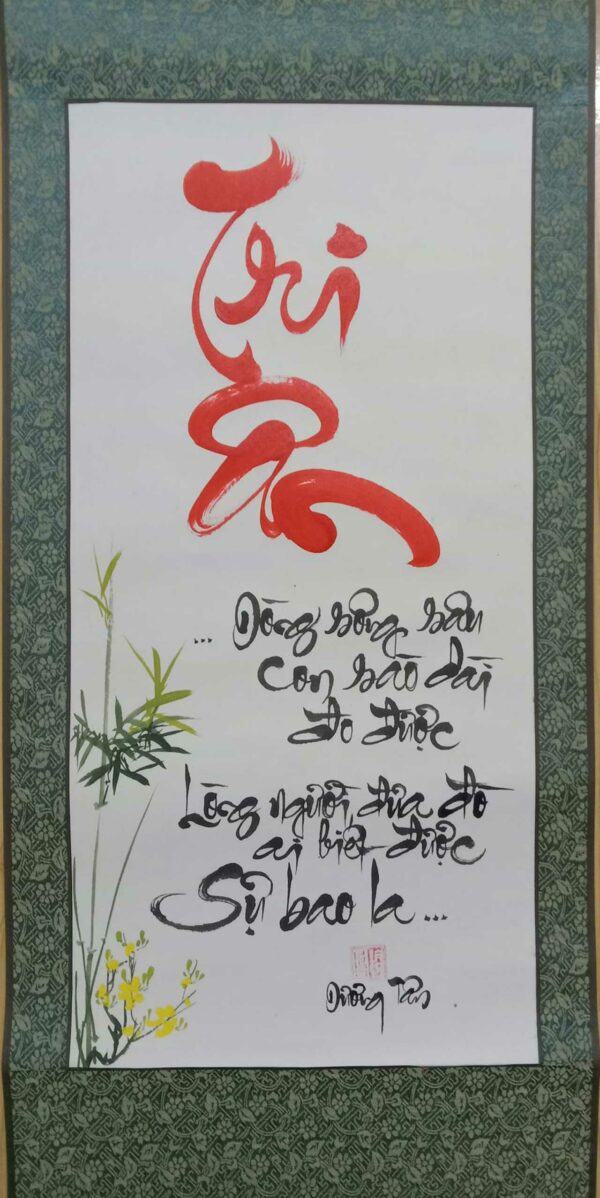 Tri
Ân
... Dòng sông sâu
con sào dài
đo được
Lòng người đưa đò
ai biết được
Sự bao la ...
Dương Tấn